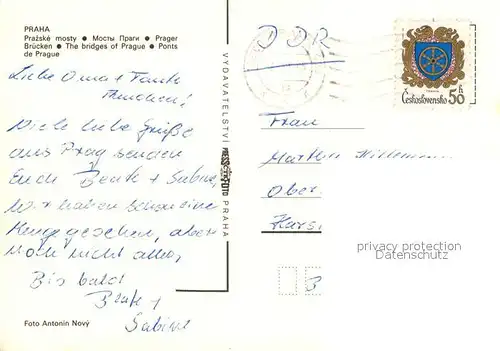 PRAHA
Pražské mosty ● Мосты Праги ● Prager
Brücken ● The bridges of Prague ● Ponts
de Prague
Liebe Oma + Tante
Viele liebe Grüße
aus Prag senden
Euch Beate + Sabine,
Wir haben schon eine
Menge gesehen, aber
noch nicht alles,
Bis bald
Beate +
Sabine
Foto Antonín Nový
VYDAVATELSTVÍ PRESSFOTO PRAHA
DDR
Československo 50 h
Frau
Ober
privacy protection